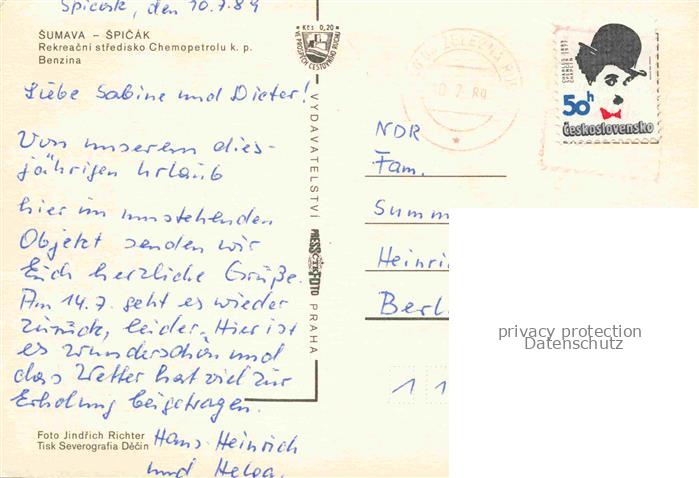 Spičák, den 10.7.89
ŠUMAVA – ŠPIČÁK
Rekreační středisko Chemopetrolu k. p.
Benzina
Liebe Sabine und Dieter!
Von unserem dies-
jährigen Urlaub
hier im umstehenden
Objekt senden wir
Euch herzliche Grüße.
Am 14.7. geht es wieder
zurück, leider. Hier ist
es wunderschön und
das Wetter hat viel zur
Erholung beigetragen.
Hans-Heinrich
und Helga.
Foto Jindřich Richter
Tisk Severografia Děčín
Kčs 0,20
VYDAVATELSTVÍ PRESSFOTO PRAHA
ČTK
10.7.89
50h
Československo
NDR
Fam.
Summ
Heinri
Berl
1 1
privacy protection
Datenschutz